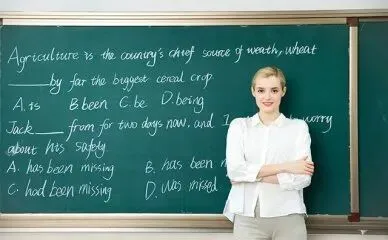 Agriculture is the country's chief source of weath, wheat
____by far the biggest cereal crop.
A. is B. been C. be D. being
Jack____from for two days now, and I worry
about his safety
A. has been missing B. has been
C. had been missing D. was missed